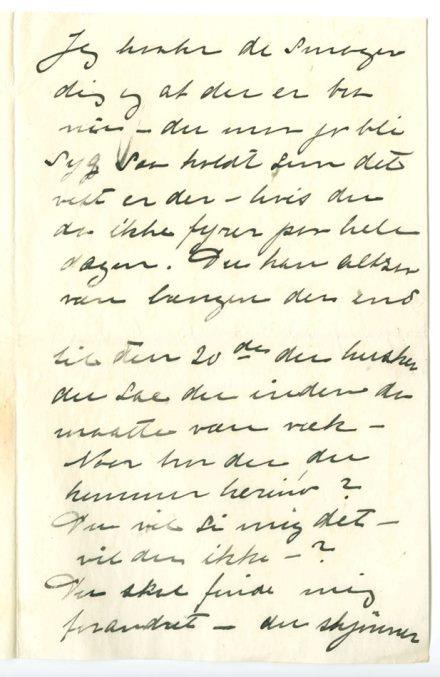 Jeg haaber de smager
dig og at der er bra
nu – du maa jo bli
syg saa koldt som det
vist er der – hvis du
da ikke fyrer paa hele
dagen. Du kan altsaa
være længer der end
til den 20de du husker
du sae du inden da
maatte være væk –
Naar tror du du
kommer herind?
Du vil si mig det –
vil du ikke – ?
Du skal finde mig
forandret – du skjønner